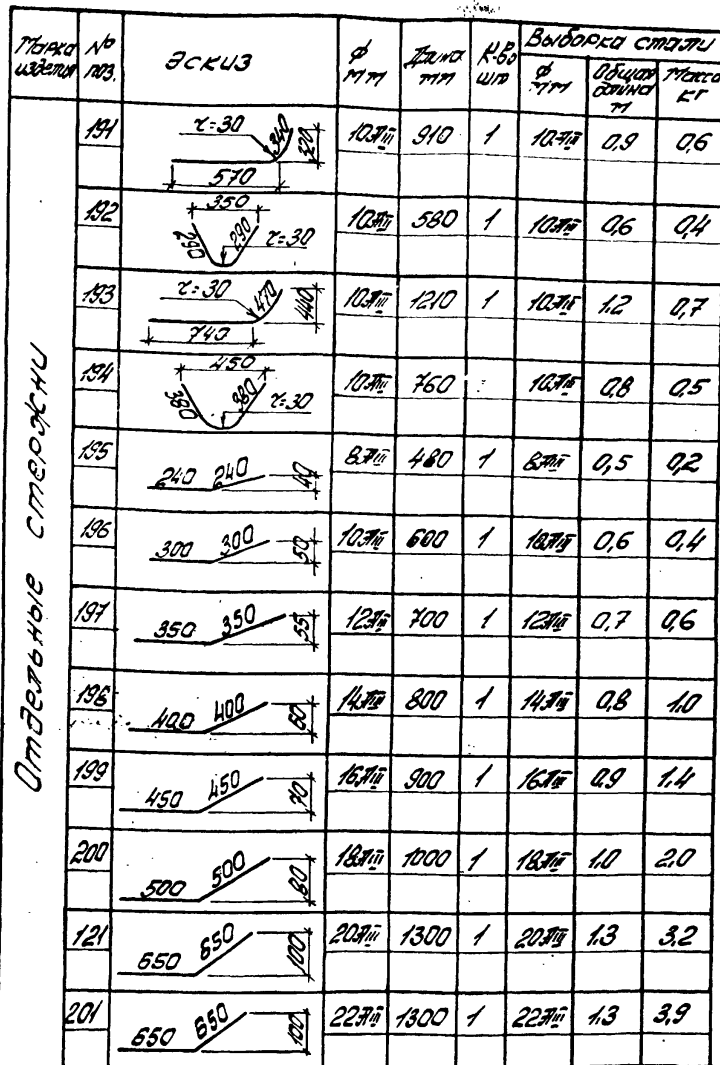 Марка изделия № поз. Эскиз ф мм Длина мм К-во шт Выборка стали
ф мм Общая длина м Масса кг
Отдельные стержни
191 r=30 340 320 570 10АIII 910 1 10АIII 0,9 0,6
192 350 290 290 r=30 10АIII 580 1 10АIII 0,6 0,4
193 r=30 470 440 740 10АIII 1210 1 10АIII 1.2 0,7
194 450 380 380 r=30 10АIII 760 10АIII 0,8 0,5
195 240 240 40 8АIII 480 1 8АIII 0,5 0,2
196 300 300 50 10АIII 600 1 10АIII 0,6 0,4
197 350 350 55 12АIII 700 1 12АIII 0,7 0,6
198 400 400 60 14АIII 800 1 14АIII 0,8 1,0
199 450 450 70 16АIII 900 1 16АIII 0,9 1,4
200 500 500 80 18АIII 1000 1 18АIII 1.0 2,0
121 650 650 100 20АIII 1300 1 20АIII 1.3 3,2
201 650 650 100 22АIII 1300 1 22АIII 1.3 3,9